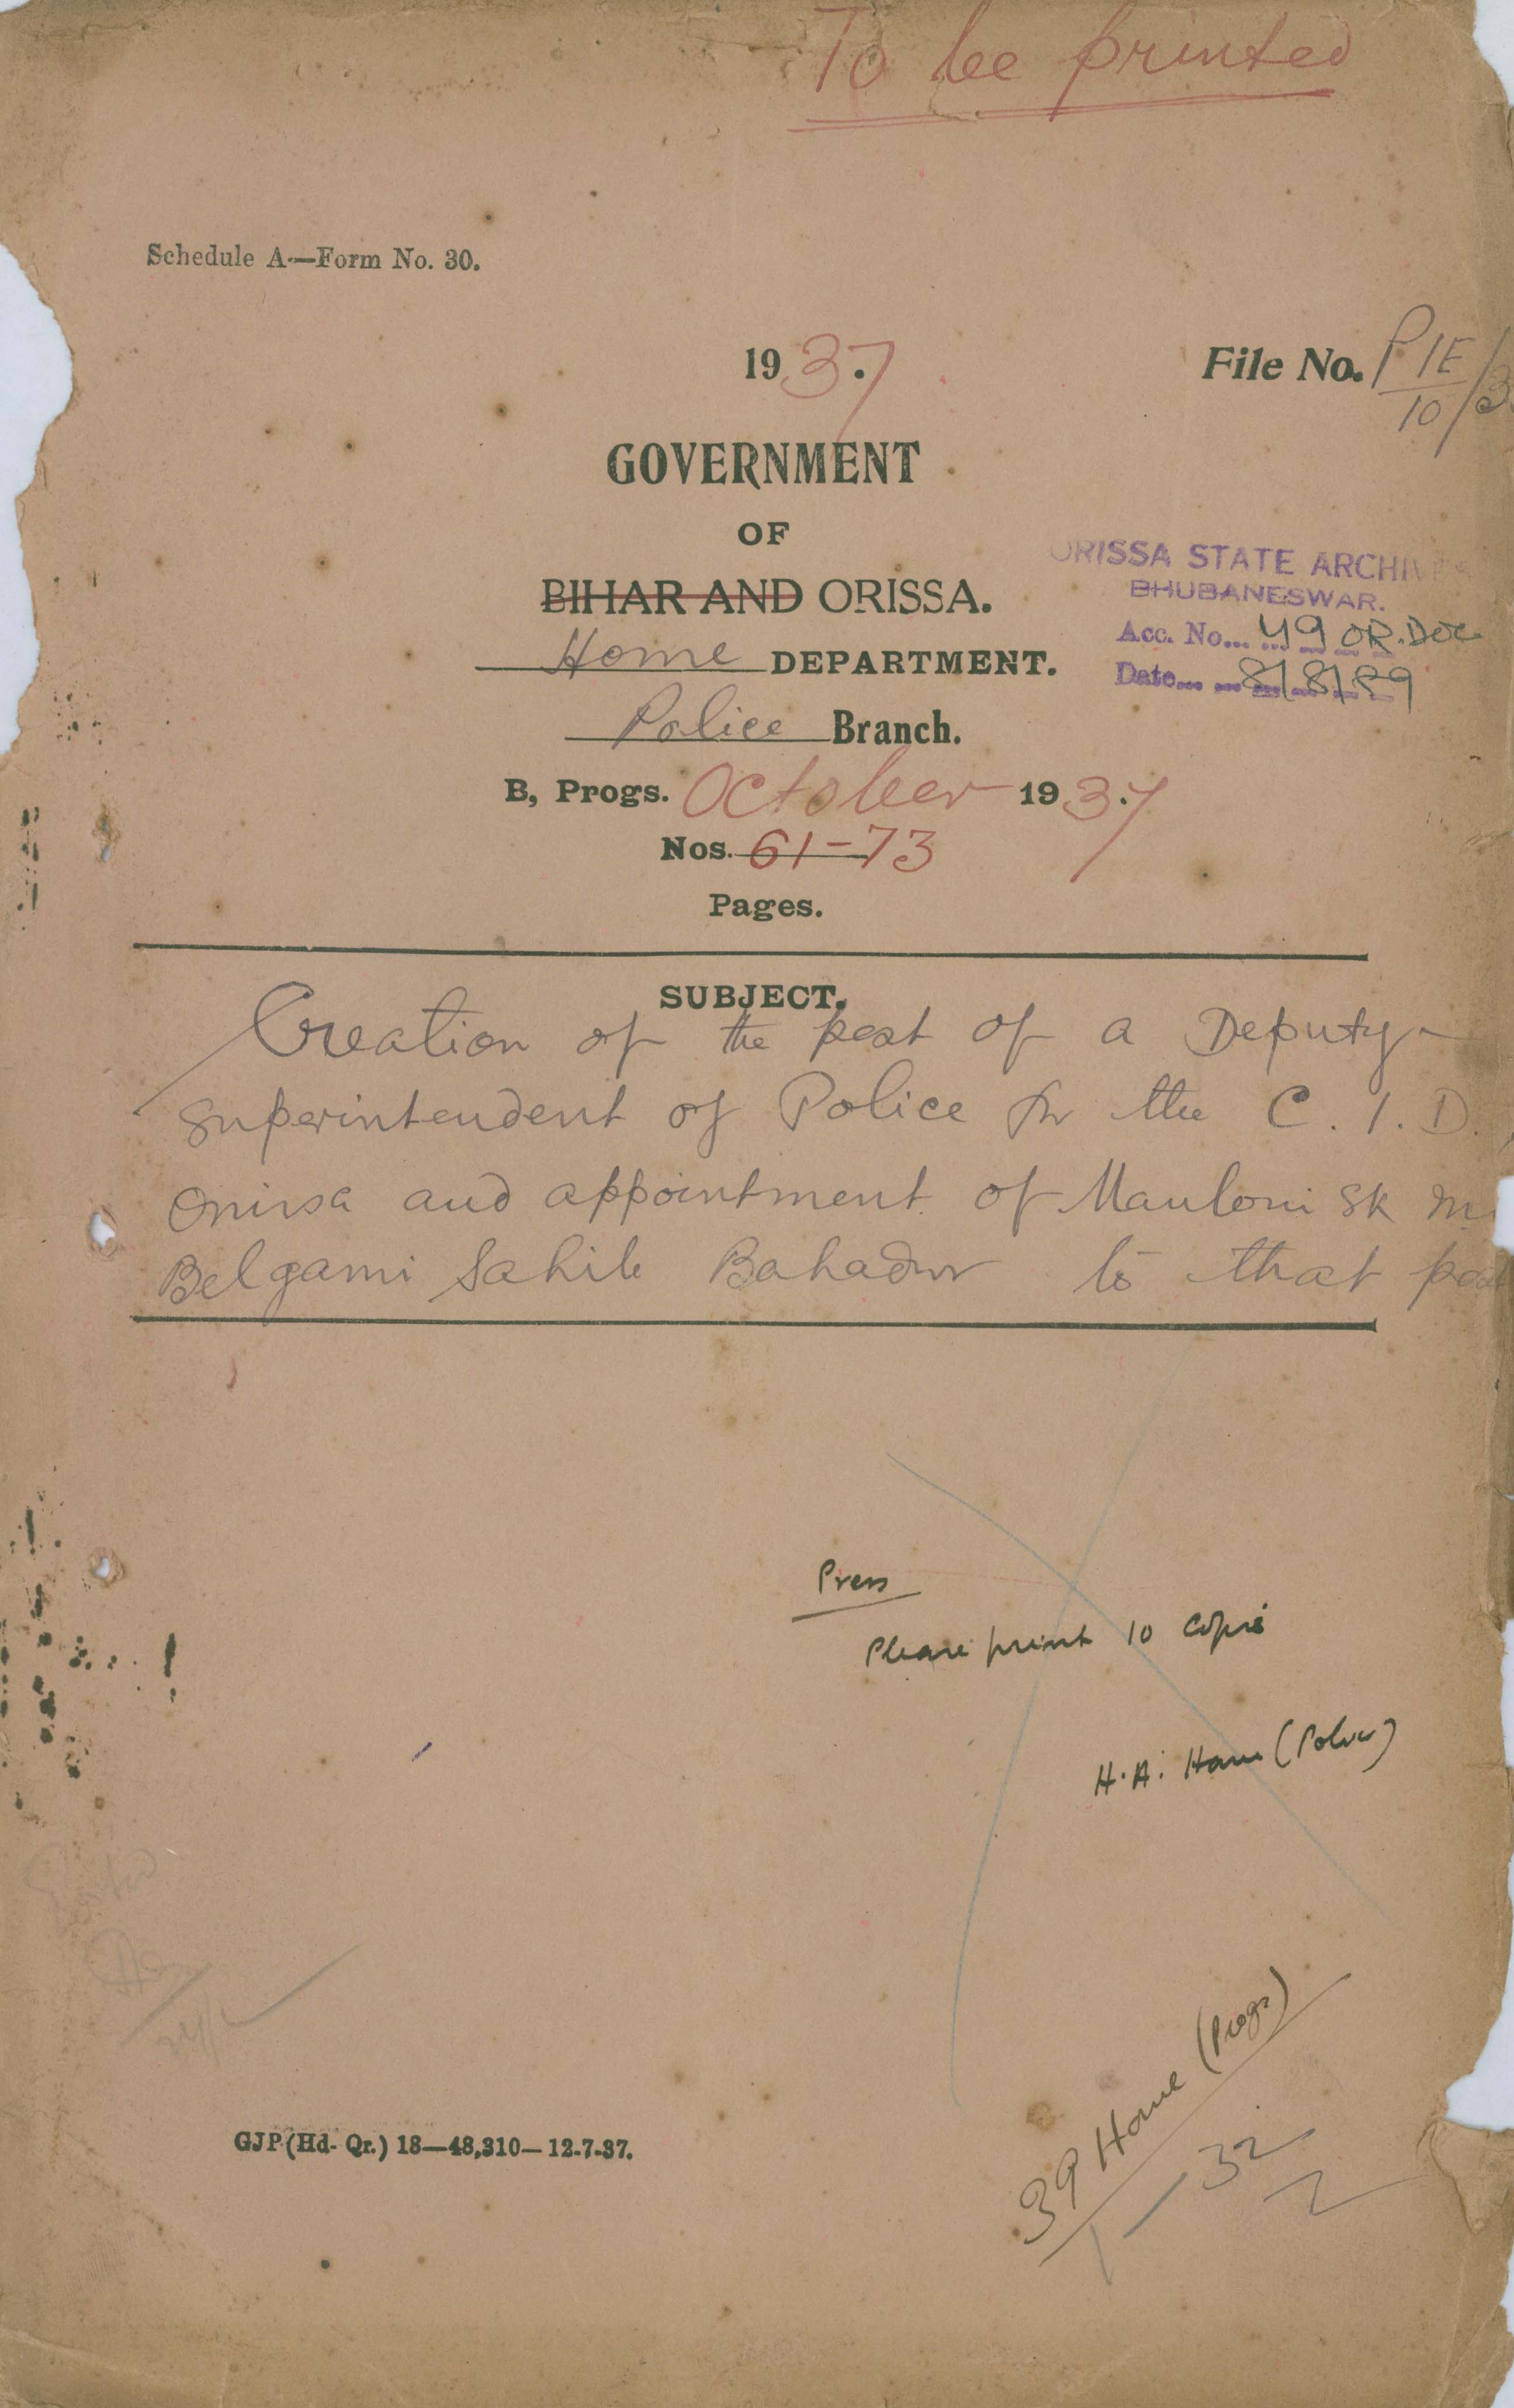 To be printed
Schedule A—Form No. 30.
1937.
File No. P1E/10/3
GOVERNMENT
OF
BIHAR AND ORISSA.
ORISSA STATE ARCHIVES
BHUBANESWAR.
Acc. No... 49 OR. DOC
Date... 8/8/89
Home DEPARTMENT.
Police Branch.
B, Progs. October 1937.
Nos. 61-73
Pages.
SUBJECT.
Creation of the post of a Deputy
Superintendent of Police for the C. I. D.,
Orissa and appointment of Maulovi SK
Belgami Sahib Bahadur to that
Press
Please print 10 copies
H.A. Home (Police)
39 Home (Progs)
1—32
GJP (Hd. Qr.) 18—48,310—12-7-37.